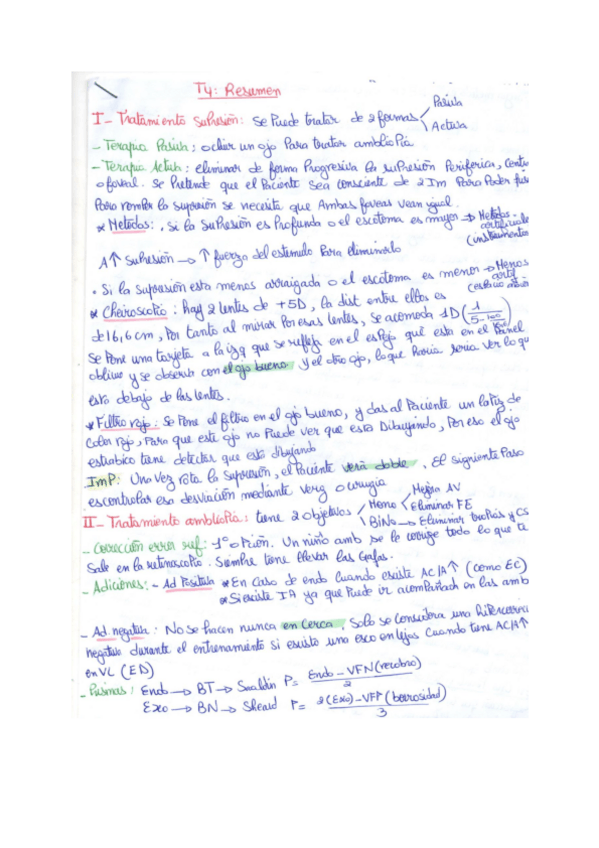 T4: Resumen
I- Tratamiento supresión: se Puede tratar de 2 formas Pasiva Activa
- Terapia Pasiva: ocluir un ojo Para tratar ambliopía.
- Terapia Activa: eliminar de forma Progresiva la supresión Periferica,
o foveal. se Pretende que el Paciente sea consciente de 2 Im Para Poder
Para romper la supresión se necesita que Ambas foveas vean igual.
* Metodos: . Si la supresión es Profunda o el escotoma es mayor → Metodos
(instrumentos
A ↑ supresión → ↑ fuerza del estimulo Para eliminarlo
• Si la supresión esta menos arraigada o el escotoma es menor → Menos
artif
(espacio
* Cheiroscopio: hay 2 lentes de +5D, la dist entre ellos es
de 16,6 cm, Por tanto al mirar Por esas lentes, se acomoda 1D
Se Pone una tarjeta a la izq que se refleja en el espejo que esta en el Panel
oblicuo y se observa con el ojo bueno y el otro ojo, lo que haria seria ver lo que
esta debajo de las lentes.
* Filtro rojo: Se Pone el filtro en el ojo bueno, y das al Paciente un lapiz de
Color rojo, Para que este ojo no Puede ver que esta Dibujando, Por eso el ojo
estrabico tiene detectar que esta dibujando
ImP: Una vez rota la supresión, el Paciente verá doble. El siguiente Paso
es controlar esa desviación mediante verg o cirugia
II- Tratamiento ambliopía: tiene 2 objetivos Mono Mejora AV Eliminar FE
BiNo → Eliminar tropias y CS
- Corrección error ref: 1º oPción. Un niño amb, se le corrige todo lo que te
Sale en la retinoscopia. Siempre tiene llevar las Gafas.
- Adiciones: - Ad Positiva * En caso de endo Cuando existe AC/A ↑ (como EC)
* Si existe IA ya que Puede ir acompañada en las amb
- Ad. negativa: No se hacen nunca en cerca. Solo se considera una
negativo durante el entrenamiento si existe una exo en lejos Cuando tiene AC/A ↑
en VL (ED)
- Prismas: Endo → BT → P = Endo - VFN (recobro) / 2
Exo → BN → Sheard P = 2(Exo) - VFP (borrosidad) / 3